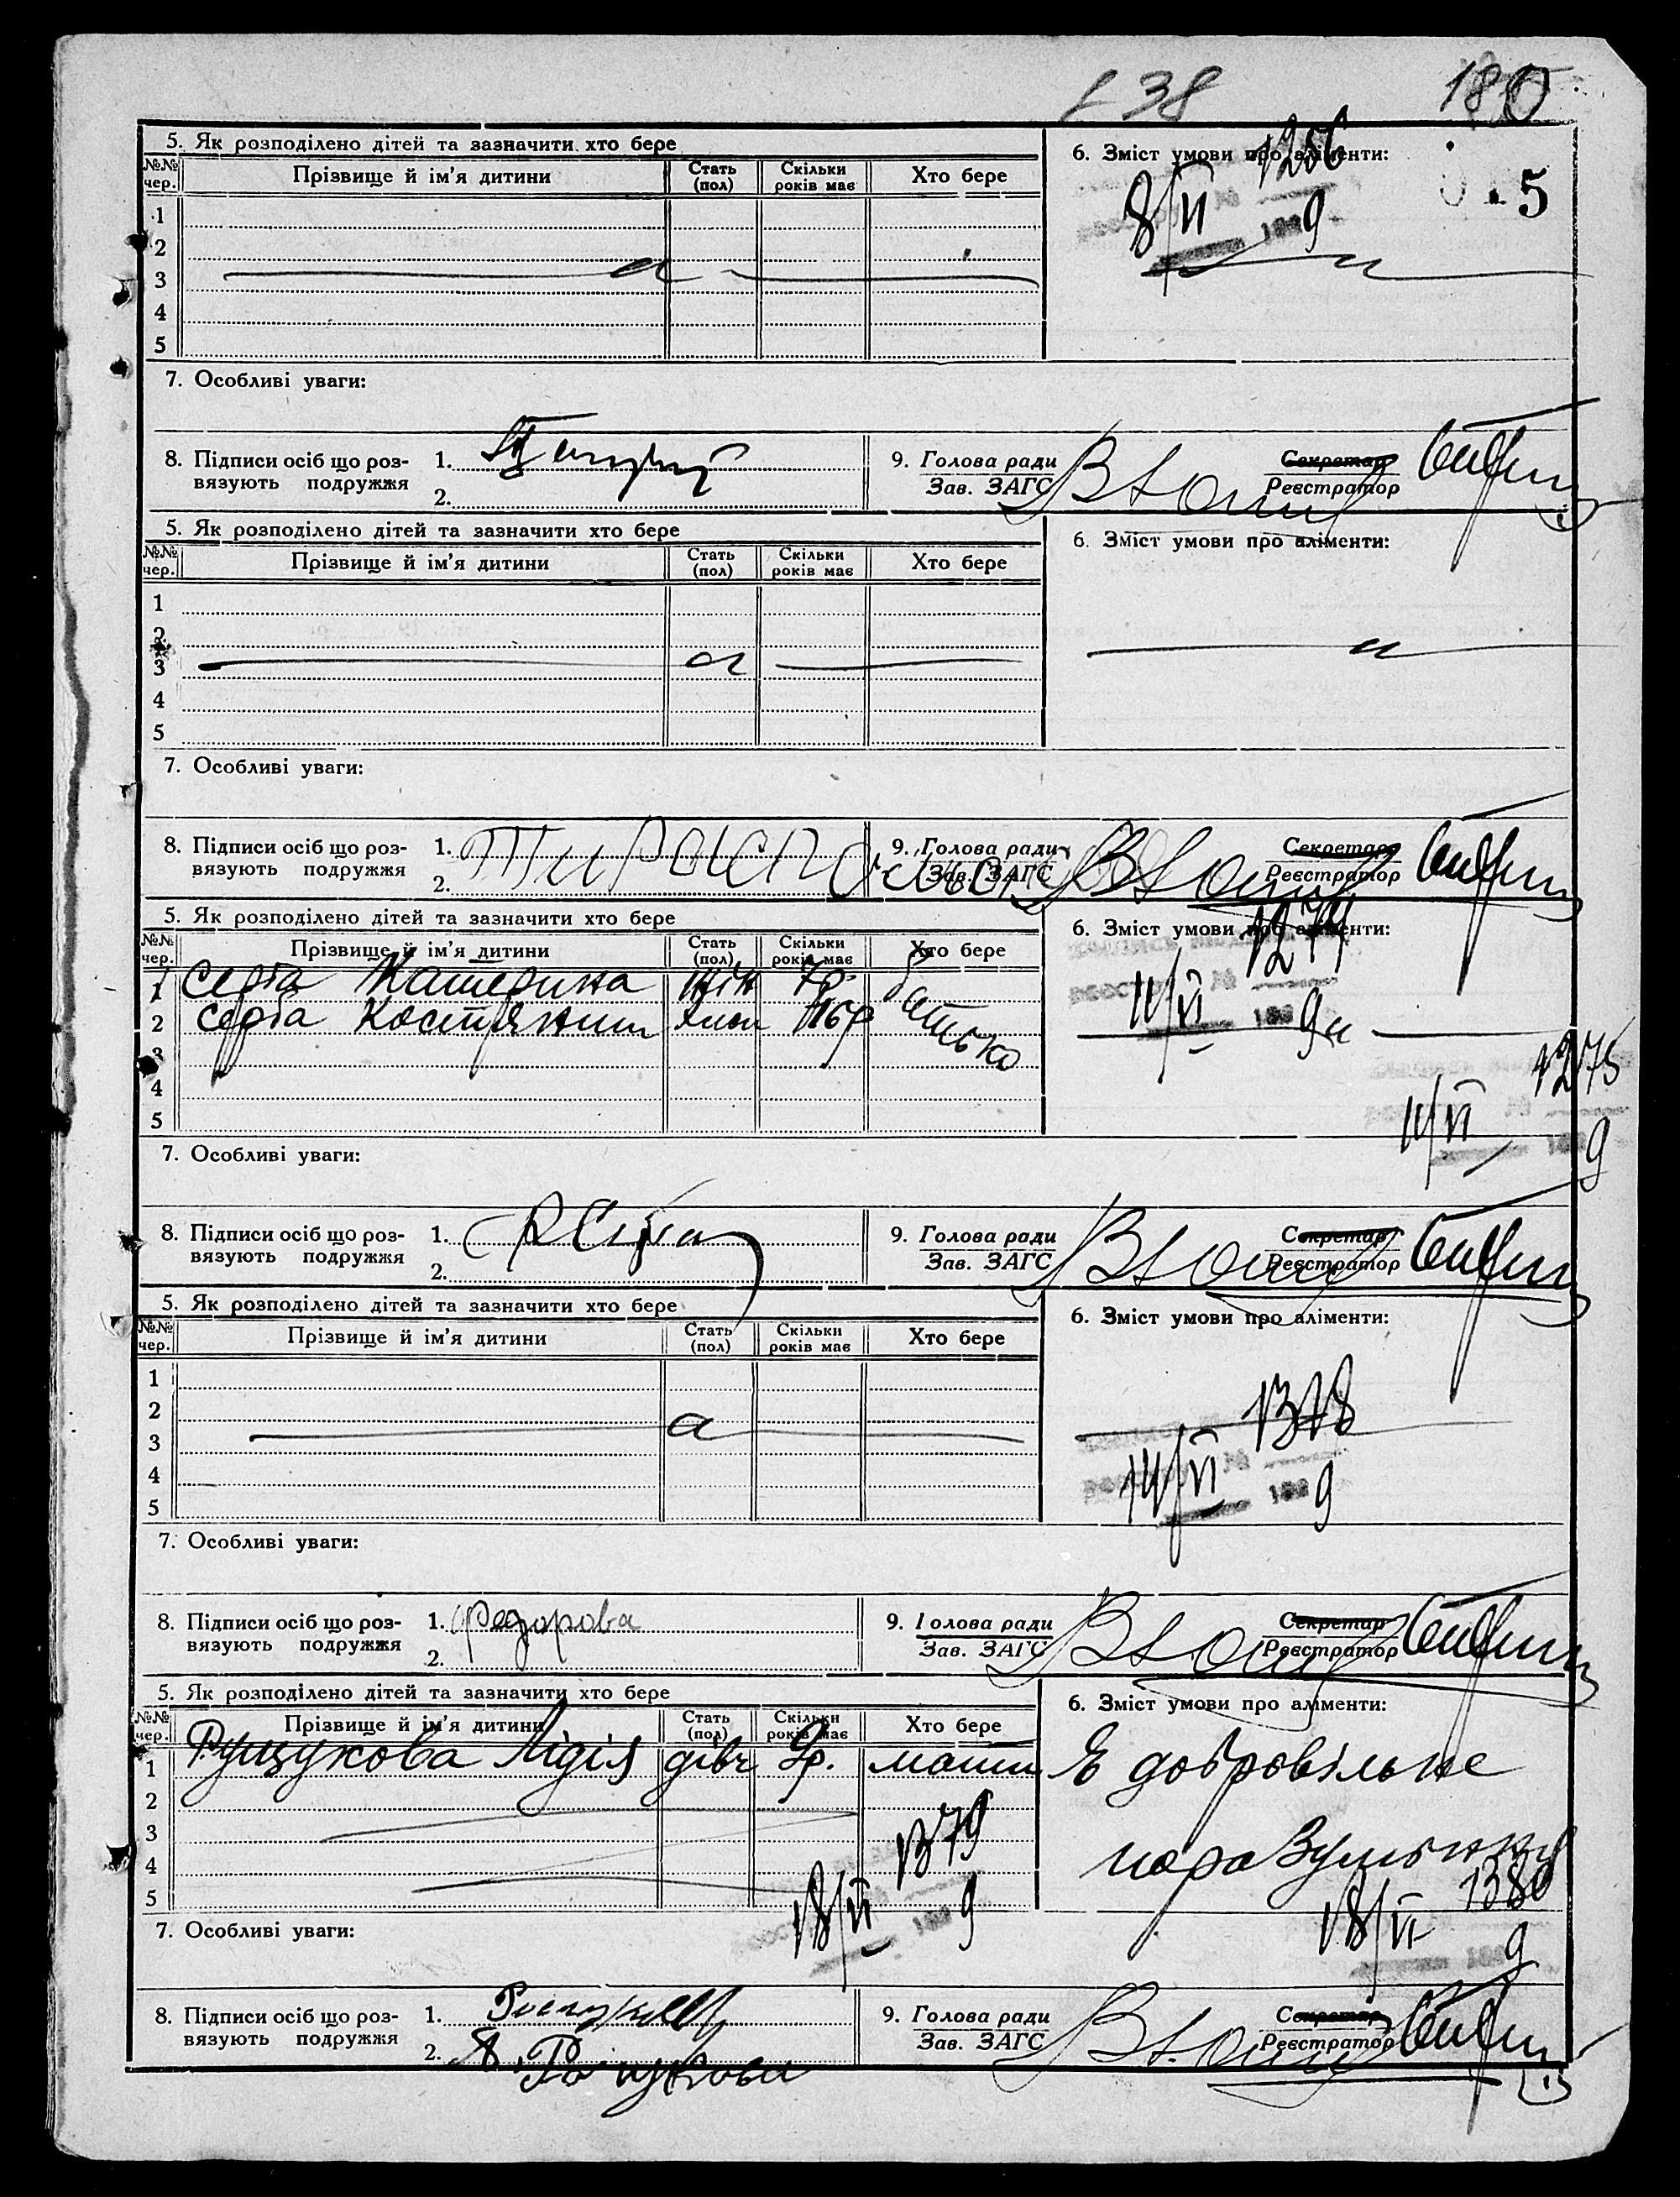 138 180
5. Як розподілено дітей та зазначити хто бере
6. Зміст умови про аліменти:
1256
8/VI 9
5
№№ чер. Прізвище й ім'я дитини Стать (пол) Скільки років має Хто бере
1
2
3
4
5
7. Особливі уваги:
8. Підписи осіб що роз-
вязують подружжя
1.
2.
9. Голова ради
Зав. ЗАГС
Секретар
Реєстратор
5. Як розподілено дітей та зазначити хто бере
6. Зміст умови про аліменти:
№№ чер. Прізвище й ім'я дитини Стать (пол) Скільки років має Хто бере
1
2
3
4
5
7. Особливі уваги:
8. Підписи осіб що роз-
вязують подружжя
1.
2.
9. Голова ради
Зав. ЗАГС
Секретар
Реєстратор
5. Як розподілено дітей та зазначити хто бере
6. Зміст умови про аліменти:
1274
11/VI 9
№№ чер. Прізвище й ім'я дитини Стать (пол) Скільки років має Хто бере
1 Серба Катерина жін 7р. батько
2 Серба Костянтин
3
4
5
1275
11/VI 9
7. Особливі уваги:
8. Підписи осіб що роз-
вязують подружжя
1.
2.
9. Голова ради
Зав. ЗАГС
Секретар
Реєстратор
5. Як розподілено дітей та зазначити хто бере
6. Зміст умови про аліменти:
№№ чер. Прізвище й ім'я дитини Стать (пол) Скільки років має Хто бере
1
2
3
4
5
1318
14/VI 9
7. Особливі уваги:
8. Підписи осіб що роз-
вязують подружжя
1. Федорова
2.
9. Голова ради
Зав. ЗАГС
Секретар
Реєстратор
5. Як розподілено дітей та зазначити хто бере
6. Зміст умови про аліменти:
№№ чер. Прізвище й ім'я дитини Стать (пол) Скільки років має Хто бере
1 Рущукова Лідія дівч 9р. мати
Є добровільне
2
3
4
5
1379
18/VI 9
1380
18/VI 9
7. Особливі уваги:
8. Підписи осіб що роз-
вязують подружжя
1.
2.
9. Голова ради
Зав. ЗАГС
Секретар
Реєстратор